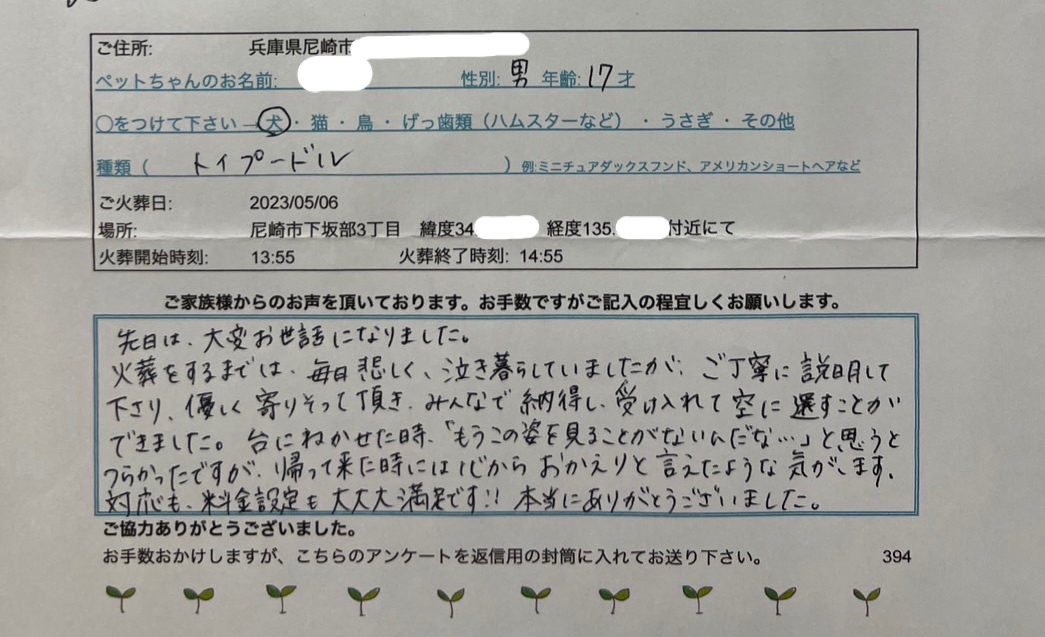 ご住所: 兵庫県尼崎市
ペットちゃんのお名前: 性別: 男 年齢: 17才
〇をつけて下さい→犬・猫・鳥・げっ歯類（ハムスターなど）・うさぎ・その他
種類（ トイプードル ）例:ミニチュアダックスフンド、アメリカンショートヘアなど
ご火葬日: 2023/05/06
場所: 尼崎市下坂部3丁目 緯度34. 経度135. 付近にて
火葬開始時刻: 13:55 火葬終了時刻: 14:55
ご家族様からのお声を頂いております。お手数ですがご記入の程宜しくお願いします。
先日は、大変お世話になりました。
火葬をするまでは、毎日悲しく、泣き暮らしていましたが、ご丁寧に説明して
下さり、優しく寄りそって頂き、みんなで納得し、受け入れて空に還すことが
できました。台にねかせた時、「もうこの姿を見ることがないんだな…」と思うと
つらかったですが、帰って来た時には心からおかえりと言えたような気がします。
対応も、料金設定も大大大満足です!! 本当にありがとうございました。
ご協力ありがとうございました。
お手数おかけしますが、こちらのアンケートを返信用の封筒に入れてお送り下さい。 394